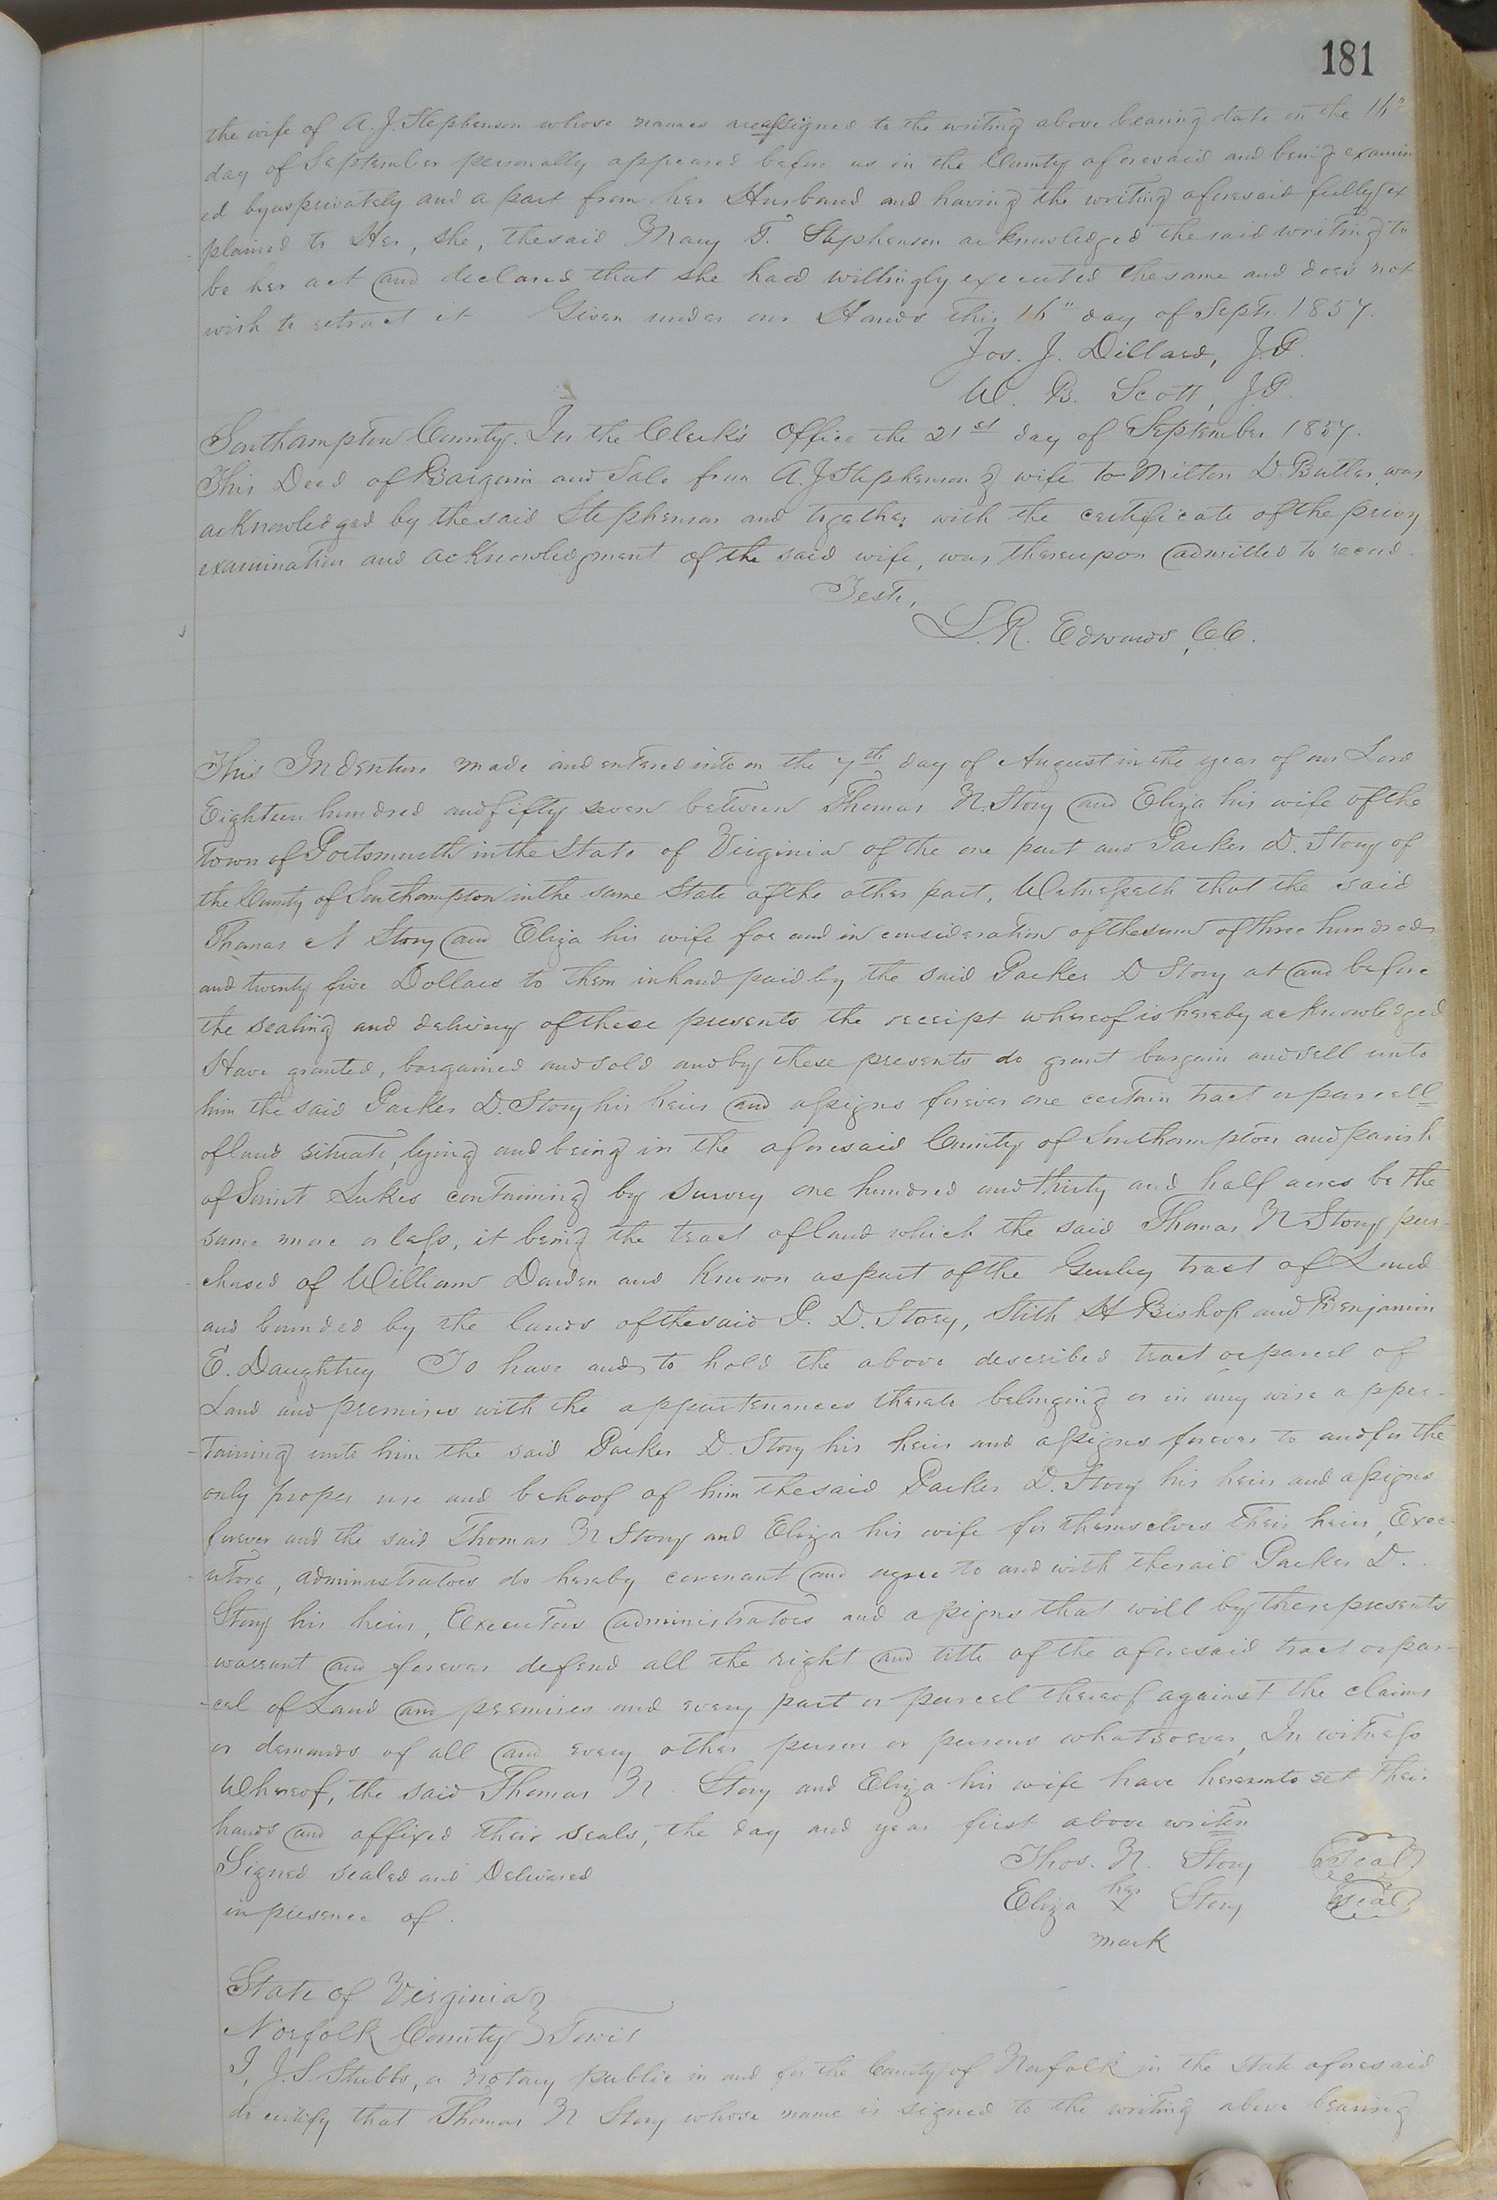 181
the wife of A. J. Stephenson whose names are assigned to the writing above bearing date on the 16"
day of September personally appeared before us in the County aforesaid and being examin
ed by us privately and a part from her Husband and having the writing aforesaid fully ex
plained to Her, she, the said Mary T. Stephenson acknowledged the said writing to
be her act and declared that she had willingly executed the same and does not
wish to retract it Given under our Hands this 16" day of Sept. 1857.
Jos. J. Dillard, J.P.
W. B. Scott, J.P.
Southampton County. In the Clerk's Office the 21st day of September 1857.
This Deed of Bargain and Sale from A. J Stephenson & wife to Milton D. Butler, was
acknowledged by the said Stephenson and together with the certificate of the privy
examination and acknowledgment of the said wife, was thereupon admitted to record.
Teste,
L. R. Edwards, C.C.
This Indenture made and entered into on the 7th day of August in the year of our Lord
Eighteen hundred and fifty seven between Thomas N. Story and Eliza his wife of the
Town of Portsmouth in the State of Virginia of the one part and Parker D. Story of
the County of Southampton in the same State of the other part, Witnesseth that the said
Thomas N Story and Eliza his wife for and in consideration of the sum of three hundred
and twenty five Dollars to them in hand paid by the said Parker D Story at and before
the sealing and delivery of these presents the receipt whereof is hereby acknowledged
Have granted, bargained and sold and by these presents do grant bargain and sell unto
him the said Parker D. Story his heirs and assigns forever one certain tract or parcell
of land situate, lying and being in the aforesaid County of Southampton and parish
of Saint Lukes containing by survey one hundred and thirty and half acres be the
same more or less, it being the tract of land which the said Thomas N Story pur-
chased of William Darden and known as part of the Gurley tract of Land
and bounded by the lands of the said P. D. Story, Stith H Bishop and Benjamin
E. Daughtrey To have and to hold the above described tract or parcel of
Land and premises with the appurtenances thereto belonging or in any wise apper-
-taining unto him the said Parker D. Story his heirs and assigns forever to and for the
only proper use and behoof of him the said Parker D. Story his heirs and assigns
forever and the said Thomas N Story and Eliza his wife for themselves their heirs, Exec-
-utors, administrators do hereby covenant and agree to and with the said Parker D.
Story his heirs, Executors administrators and assigns that will by these presents
warrant and forever defend all the right and title of the aforesaid tract or par-
-cel of Land and premises and every part or parcel thereof against the claims
or demands of all and every other person or persons whatsoever, In witness
Whereof, the said Thomas N Story and Eliza his wife have hereunto set their
hands and affixed their seals, the day and year first above writen
Signed sealed and Delivered Thos. N. Story Seal
in presence of. Eliza her X Story Seal
mark
State of Virginia
Norfolk County } Towit
I, J. S. Stubbs, a notary public in and for the County of Norfolk in the State aforesaid
do certify that Thomas N Story whose name is signed to the writing above bearing